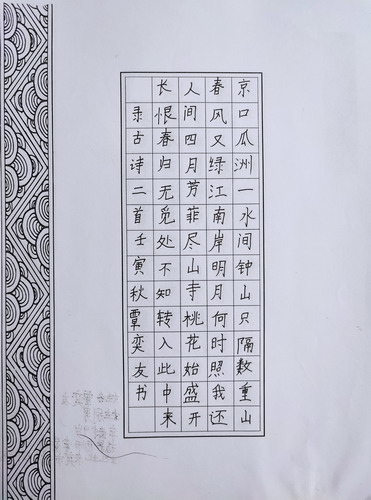 京口瓜洲一水间钟山只隔数重山
春风又绿江南岸明月何时照我还
人间四月芳菲尽山寺桃花始盛开
长恨春归无觅处不知转入此中来
录古诗二首壬寅秋覃奕友书